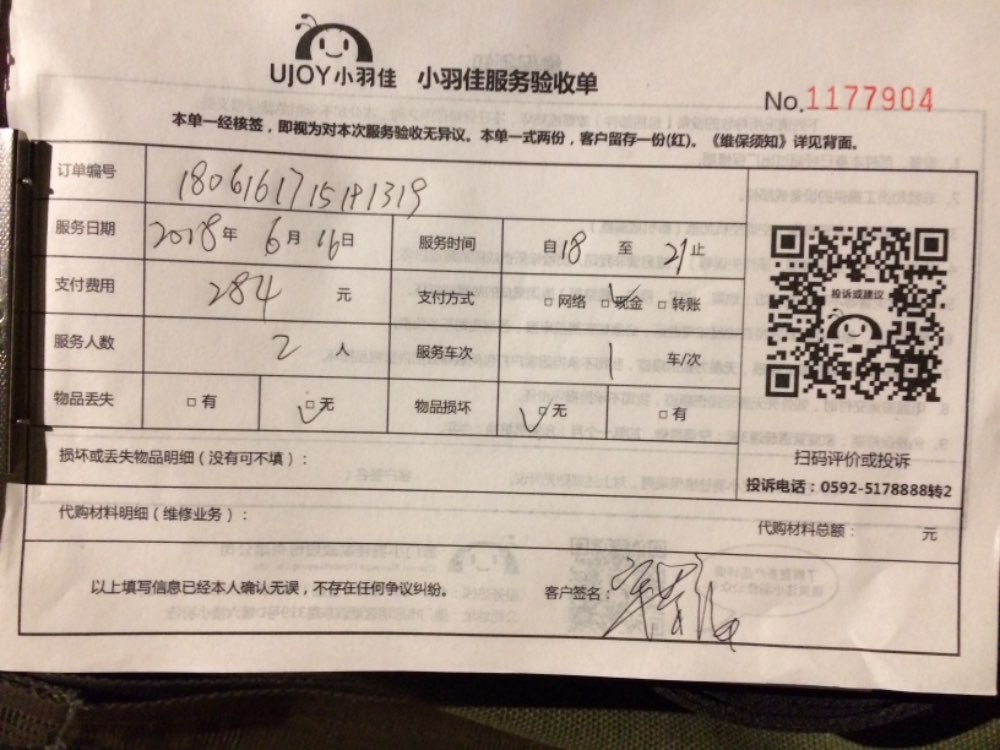 UJOY小羽佳 小羽佳服务验收单
No.1177904
本单一经核签，即视为对本次服务验收无异议。本单一式两份，客户留存一份(红)。《维保须知》详见背面。
订单编号
服务日期 2018年 6月 16日 服务时间 自18 至 21止
支付费用 284 元 支付方式 □网络 □现金 □转账
服务人数 2 人 服务车次 1 车/次
物品丢失 □有 □无 物品损坏 □无 □有
投诉或建议
扫码评价或投诉
投诉电话：0592-5178888转2
损坏或丢失物品明细（没有可不填）：
代购材料明细（维修业务）：
代购材料总额： 元
以上填写信息已经本人确认无误，不存在任何争议纠纷。 客户签名：